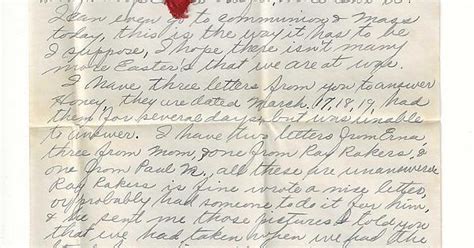 I can even go to communion & Mass
today, this is the way it has to be
I suppose, I hope there isn't many
more Easter's that we are at war.
I have three letters from you to answer
Honey, they are dated March 17, 18, 19, had
them for several days, but was unable
to answer. I have two letters from Erna
three from Mom, & one from Ray Rakers, &
one from Paul M., all these are unanswered
Ray Rakers is fine wrote a nice letter,
or probably had someone to do it for him,
& he sent me those pictures I told you
that we had taken, hope we've had the